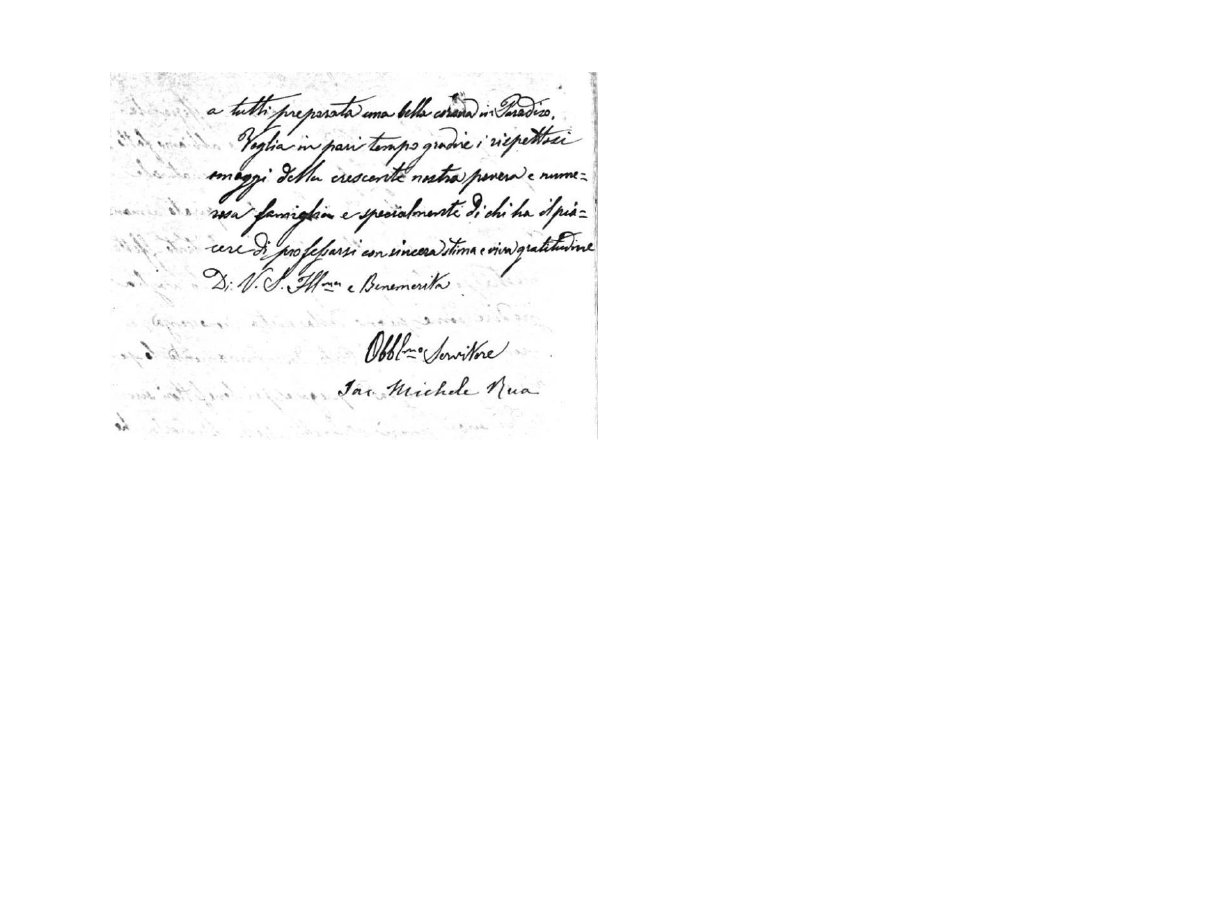 a tutti preparata una bella corona in Paradiso.
Voglia in pari tempo gradire i rispettosi
omaggi della crescente nostra povera e nume=
rosa famiglia e specialmente di chi ha il pia=
cere di professarsi con sincera stima e viva gratitudine
Di V. S. Ill.ma e Benemerita
Obbl.mo Servitore
Sac. Michele Rua